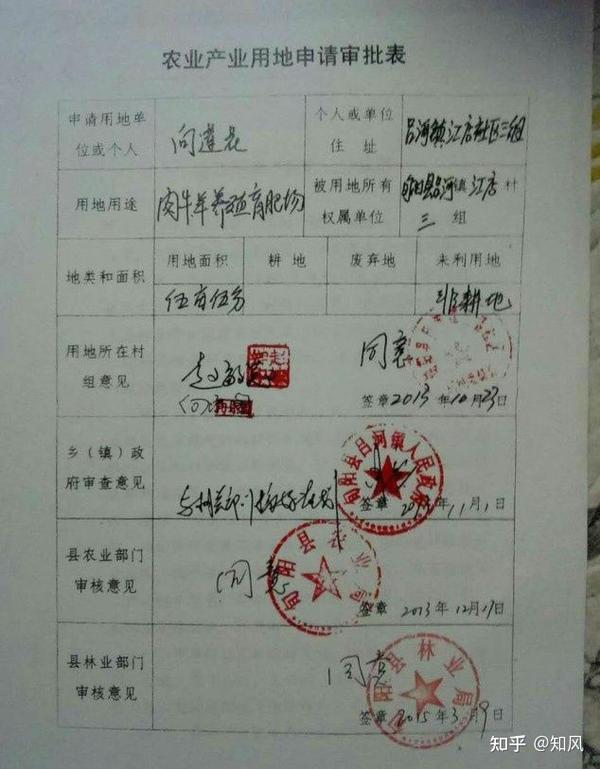 农业产业用地申请审批表
申请用地单位或个人
个人或单位住址
吕河镇江店社区三组
用地用途
肉牛羊养殖育肥场
被用地所有权属单位
旬阳县吕河镇江店村
三组
地类和面积
用地面积 耕地 废弃地 未利用地
伍亩伍分 非耕地
用地所在村组意见
同意
签章2013年10月23日
乡（镇）政府审查意见
旬阳县吕河镇人民政府
签章 2013年11月1日
县农业部门审核意见
同意
旬阳县农业局
签章 2013年12月19日
县林业部门审核意见
同意
旬阳县林业局
签章2015年3月9日
知乎 @知风